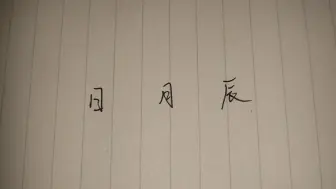 日 月 辰